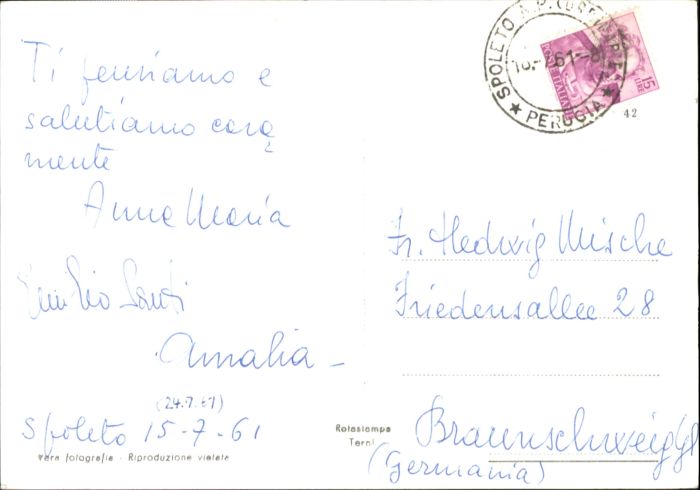 Ti pensiamo e
salutiamo cara
mente
Anna Maria
Emilio Santi
Amalia -
(24.7.61)
Spoleto 15-7-61
Vera fotografia - Riproduzione vietata
SPOLETO A.P.
PERUGIA
15
LIRE
POSTE ITALIANE
42
Fr. Hedwig Mische
Friedensallee 28
Rotastampa
Terni
Braunschweig
(Germania)